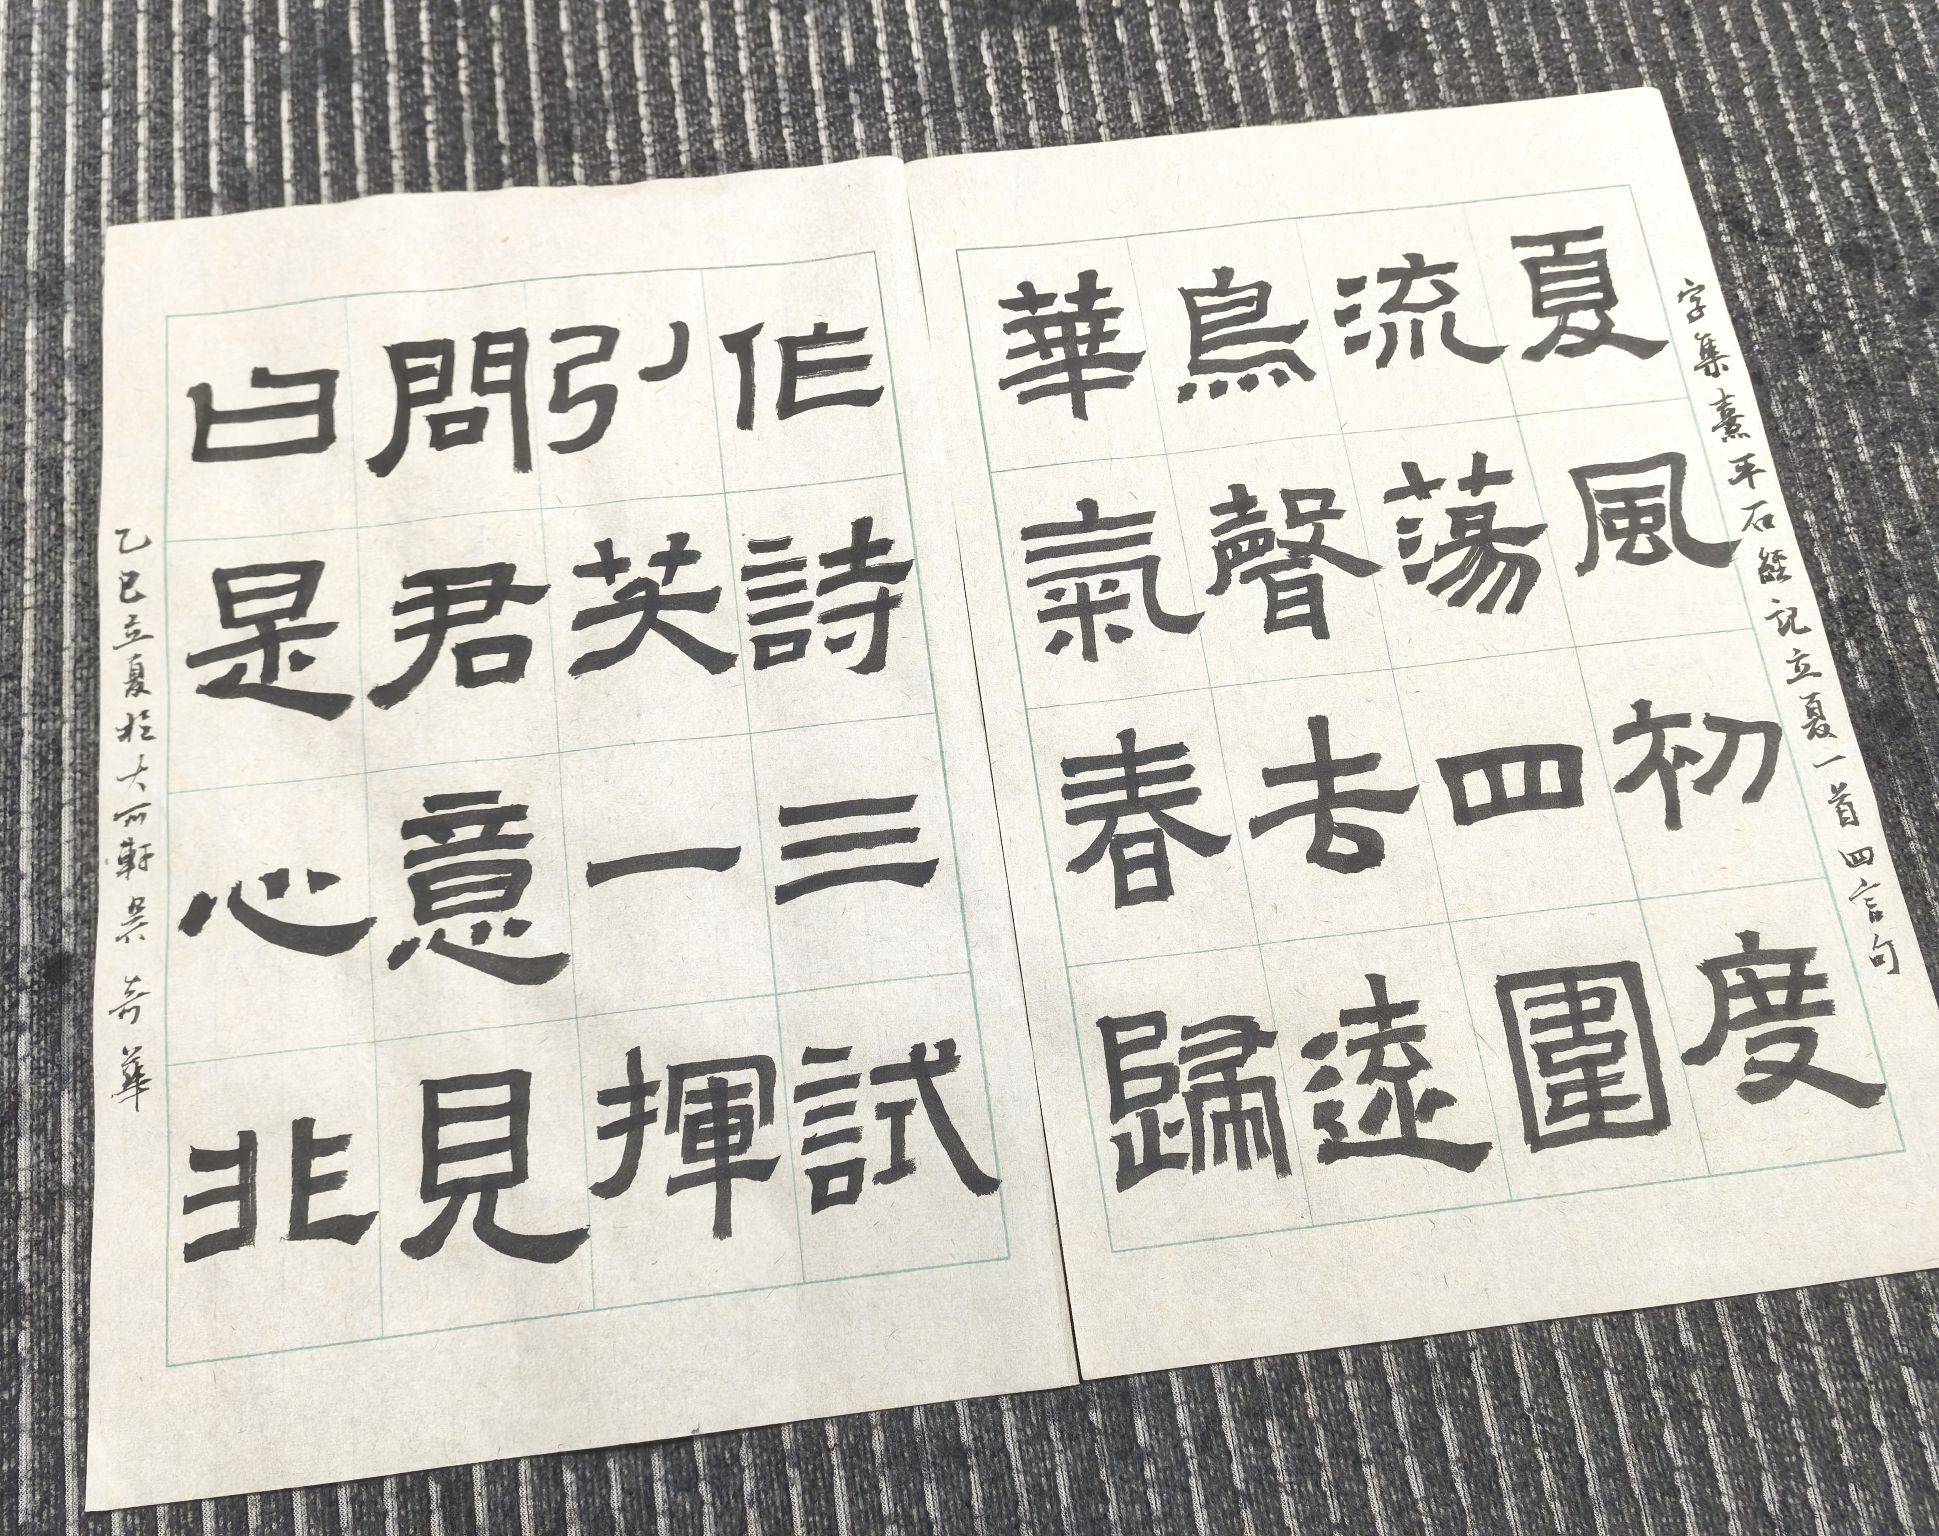 字集熹平石經記立夏一首四言句
夏風初度
流蕩四圍
鳥聲去遠
華氣春歸
作詩三試
引英一揮
問君意見
曰是心非
乙巳立夏於大可軒吳奇華